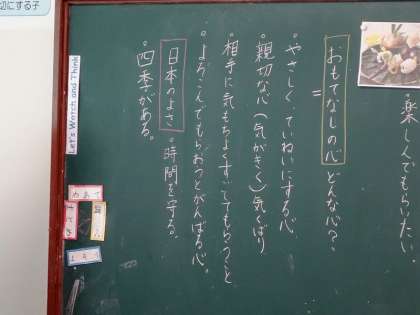 切にする子
・楽しんでもらいたい。
おもてなしの心 どんな心？
=
・やさしく、ていねいにする心
・親切な心（気がきく）気くばり
・相手に気もちよくすごしてもらうこと
・よろこんでもらおうとがんばる心。
日本のよさ ・時間を守る。
・四季がある。
Let's Watch and Think
めあて